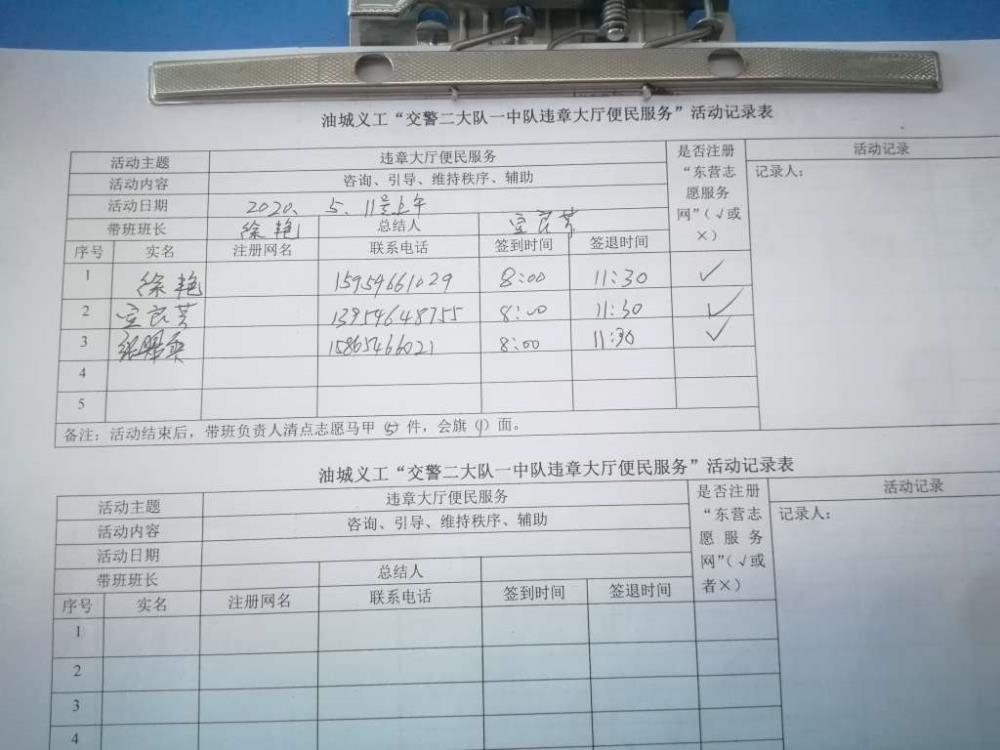 油城义工“交警二大队一中队违章大厅便民服务”活动记录表
活动主题 违章大厅便民服务 是否注册“东营志愿服务网”（√或×） 活动记录
活动内容 咨询、引导、维持秩序、辅助 记录人：
活动日期 2020、5、11号上午
带班班长 徐艳 总结人 宣良芳
序号 实名 注册网名 联系电话 签到时间 签退时间
1 徐艳 15954661029 8:00 11:30 ✓
2 宣良芳 13954648755 8:00 11:30 ✓
3 15865466021 8:00 11:30 ✓
4
5
备注：活动结束后，带班负责人清点志愿马甲（5）件，会旗（1）面。
油城义工“交警二大队一中队违章大厅便民服务”活动记录表
活动主题 违章大厅便民服务 是否注册“东营志愿服务网”（√或者×） 活动记录
活动内容 咨询、引导、维持秩序、辅助 记录人：
活动日期
带班班长 总结人
序号 实名 注册网名 联系电话 签到时间 签退时间
1
2
3
4